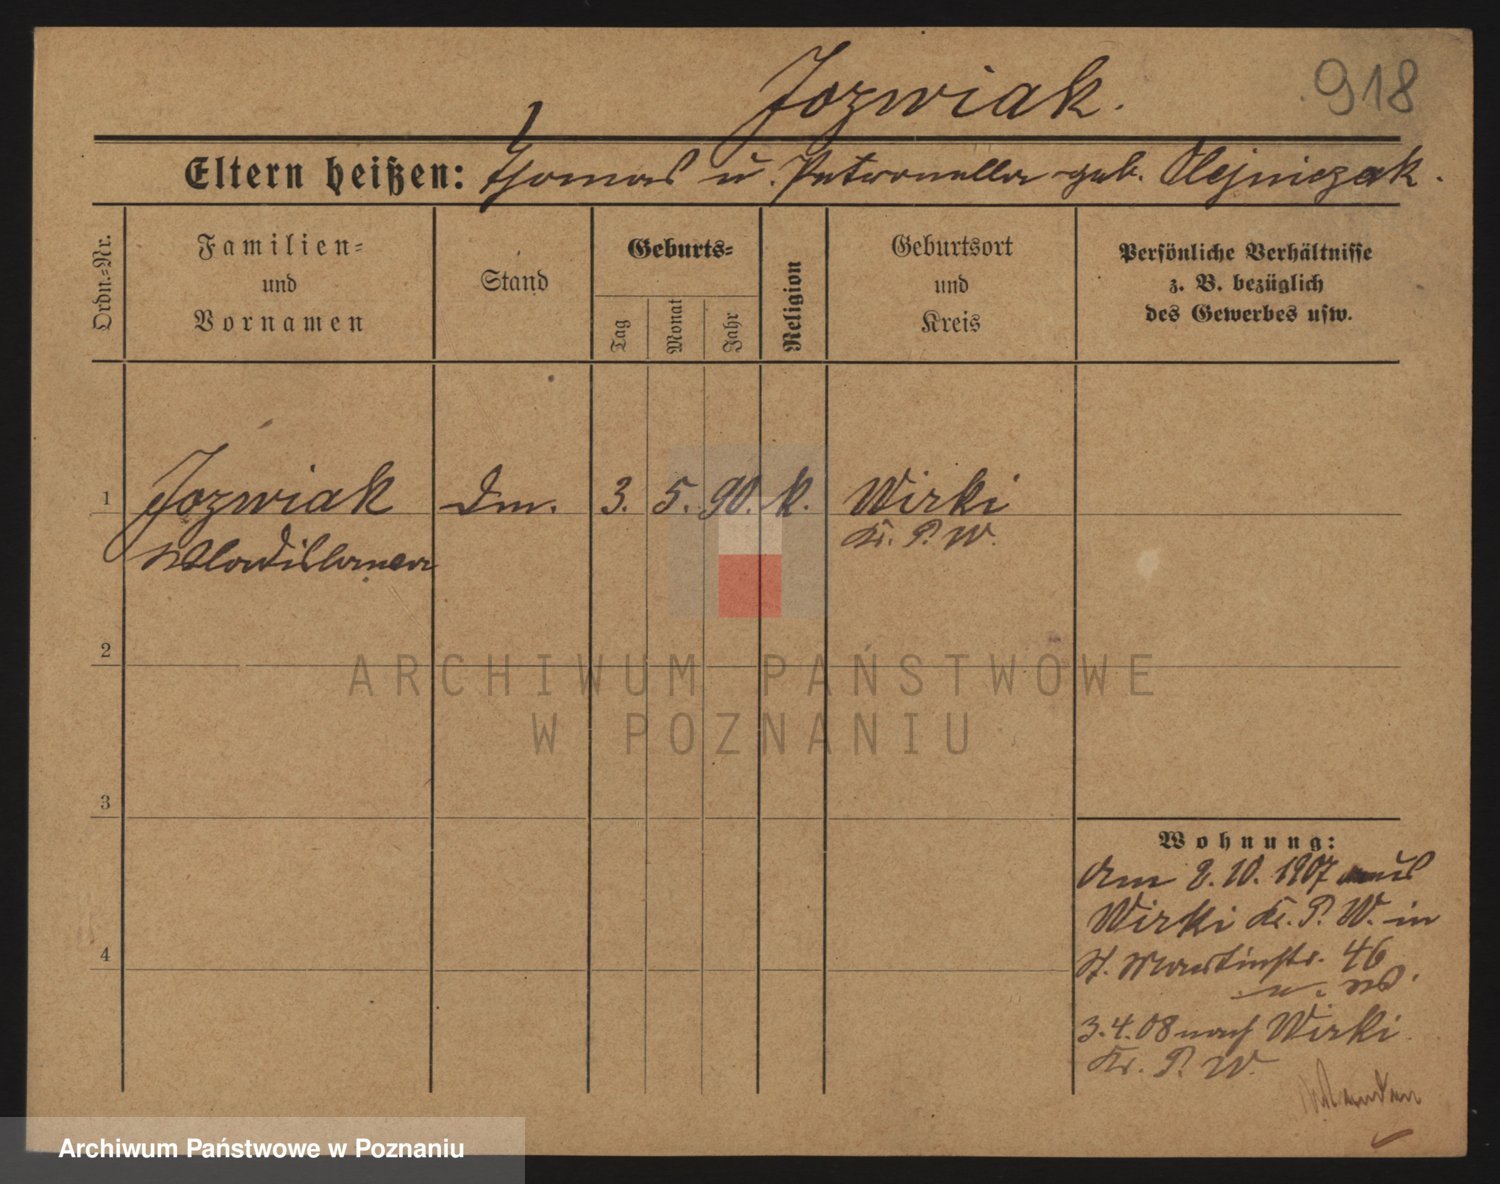 Jozwiak.
918
Eltern heißen: Thomas u. Petronella geb. Olejniczak.
Ordn.-Nr.
Familien-
und
Vornamen
Stand
Geburts-
Tag
Monat
Jahr
Religion
Geburtsort
und
Kreis
Persönliche Verhältnisse
z. B. bezüglich
des Gewerbes usw.
1 Jozwiak Dm. 3. 5. 90. k. Wirki
Wladislawa Kr. P. W.
2
3
4
Wohnung:
Am 2. 10. 1907 aus
Wirki Kr. P. W. in
St. Martinstr. 46
3.4.08 nach Wirki
Kr. P. W.
ARCHIWUM PAŃSTWOWE
W POZNANIU
Archiwum Państwowe w Poznaniu